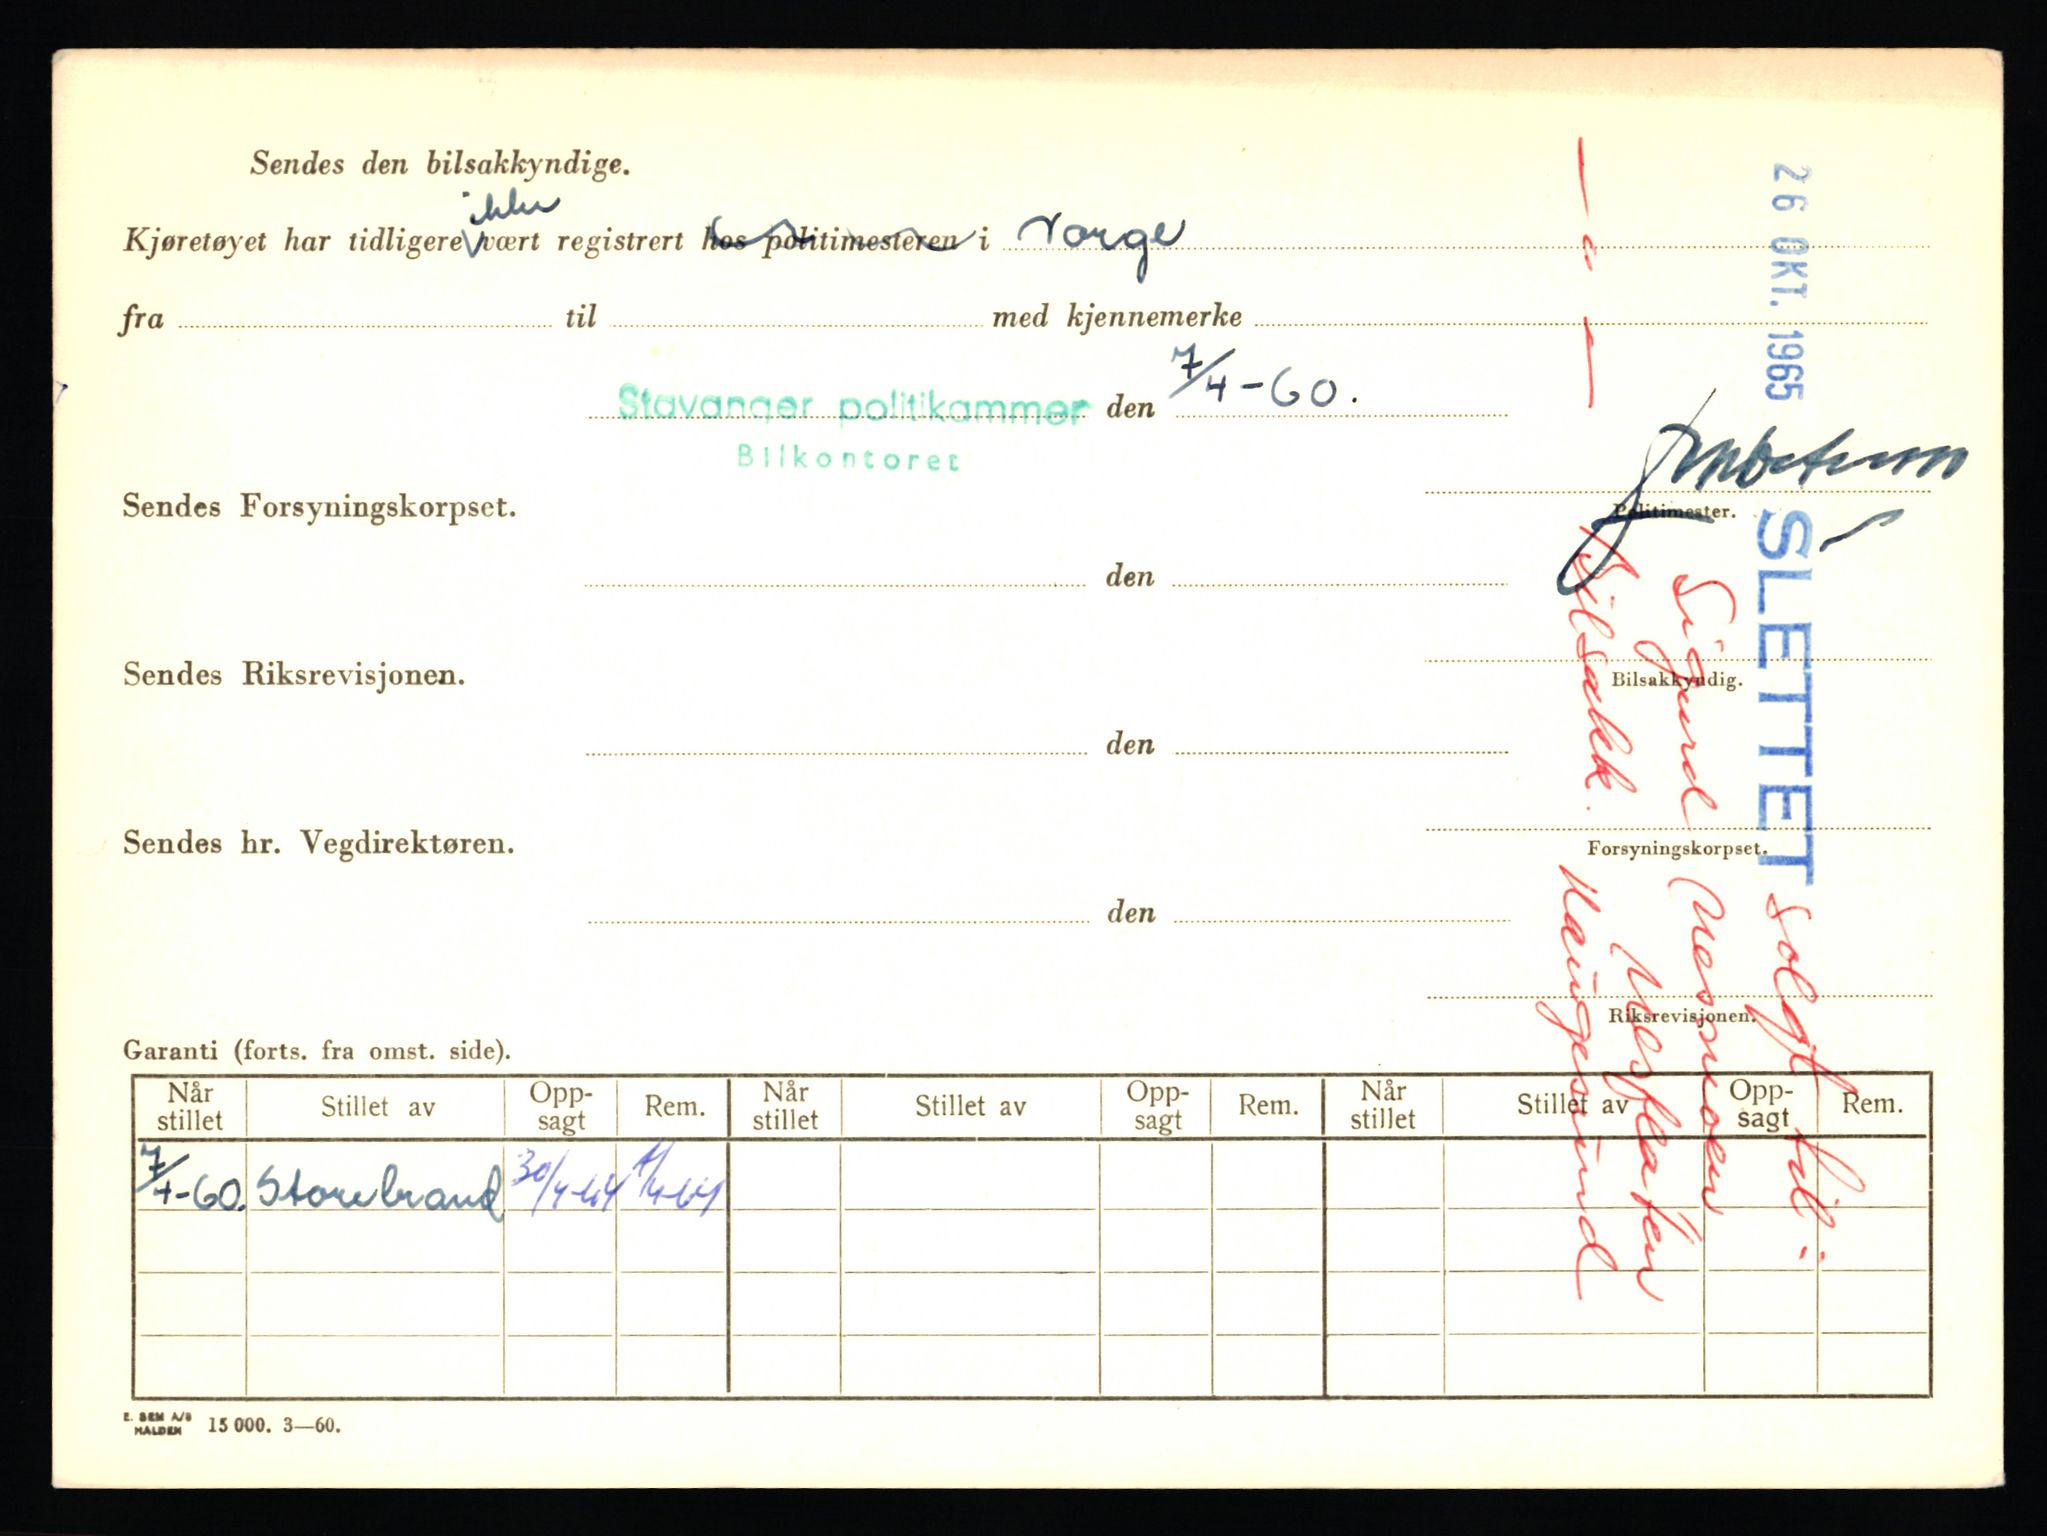 Sendes den bilsakkyndige.
ikke
Kjøretøyet har tidligere vært registrert hos politimesteren i Norge
fra til med kjennemerke
Stavanger politikammer den 7/4-60.
Bilkontoret
Politimester.
Sendes Forsyningskorpset.
den
Bilsakkyndig.
Sendes Riksrevisjonen.
den
Forsyningskorpset.
Sendes hr. Vegdirektøren.
den
Riksrevisjonen.
26 OKT. 1965
SLETTET solgt til:
Sigurd
Bilsakk. Haugesund
Garanti (forts. fra omst. side).
Når stillet Stillet av Opp-sagt Rem. Når stillet Stillet av Opp-sagt Rem. Når stillet Stillet av Opp-sagt Rem.
7/4-60. Storebrand 30/4-64
E. SEM A/S HALDEN 15 000. 3—60.